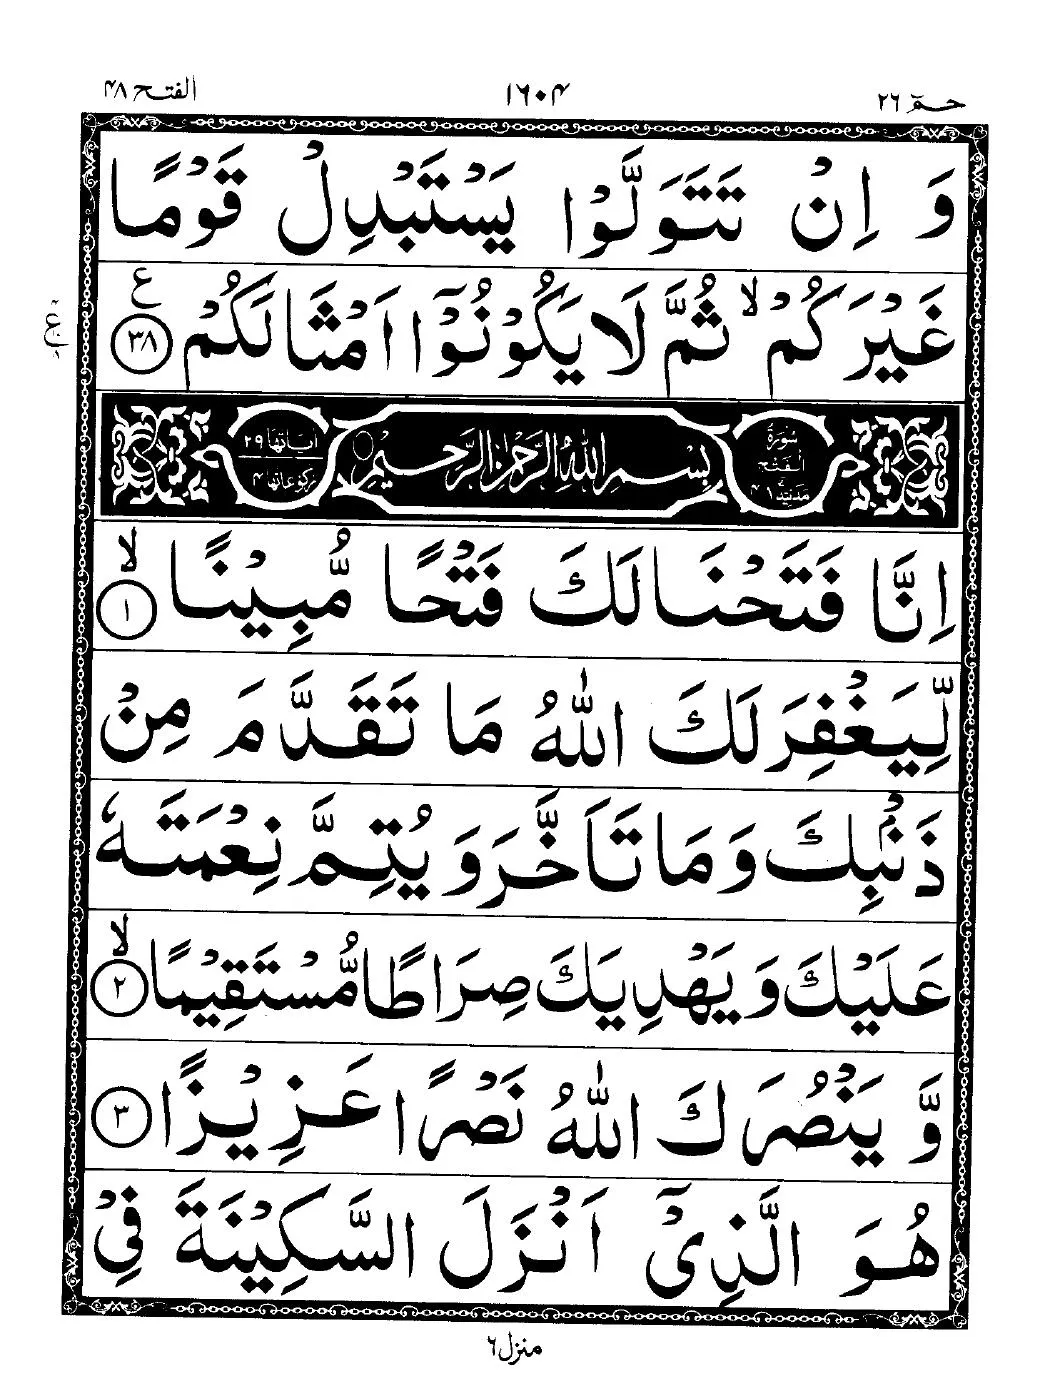 حٰمٓ ٢٦
١٦٠٤
الفتح ٤٨
وَ اِنْ تَتَوَلَّوْا يَسْتَبْدِلْ قَوْمًا
غَيْرَكُمْ ۙ ثُمَّ لَا يَكُوْنُوْۤا اَمْثَالَكُمْ ع ٣٨
سُورَةُ الْفَتْحِ مَدَنِيَّة
بِسْمِ اللهِ الرَّحْمٰنِ الرَّحِيْمِ
اٰياتها ٢٩
ركوعاتها ٤
اِنَّا فَتَحْنَا لَكَ فَتْحًا مُّبِيْنًا ۙ ١
لِّيَغْفِرَ لَكَ اللهُ مَا تَقَدَّمَ مِنْ
ذَنْۢبِكَ وَ مَا تَاَخَّرَ وَ يُتِمَّ نِعْمَتَهٗ
عَلَيْكَ وَ يَهْدِيَكَ صِرَاطًا مُّسْتَقِيْمًا ۙ ٢
وَّ يَنْصُرَكَ اللهُ نَصْرًا عَزِيْزًا ٣
هُوَ الَّذِيْۤ اَنْزَلَ السَّكِيْنَةَ فِيْ
منزل ٦